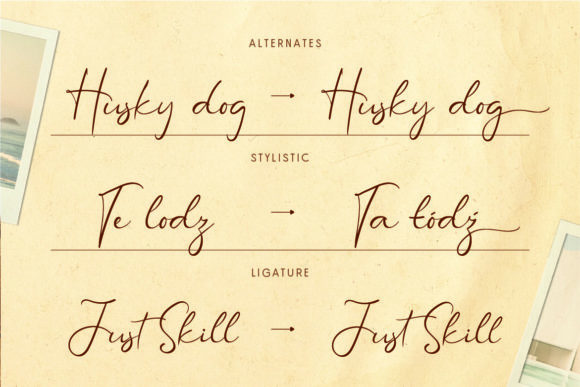 ALTERNATES
Husky dog → Husky dog
STYLISTIC
Te lodz → Ta łódź
LIGATURE
Just Skill → Just Skill